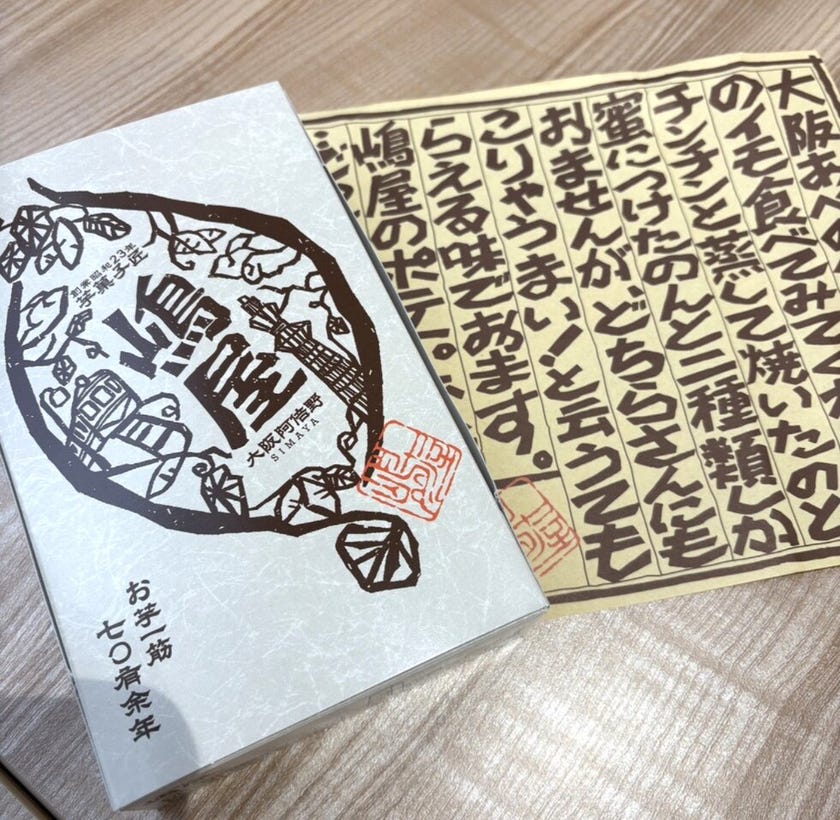 創業昭和23年
芋菓子匠
嶋屋
大阪阿倍野
SIMAYA
お芋一筋
七〇有余年
大阪あべ
のイモ食べてみて
チンチンと蒸して焼いたのと
蜜につけたのんと二種類んか
おませんが、どちらさんにも
こりゃうまい！と云うても
らえる味でおます。
嶋屋のポテ。